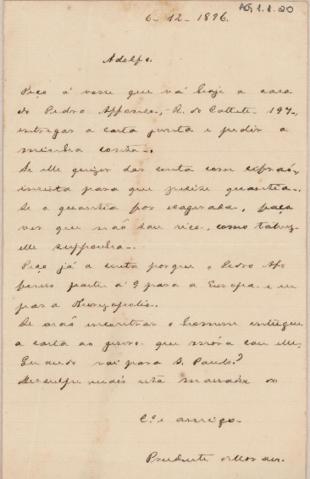 AG 1.1.20
6-12-1896.
Adolpho.
Peço á vosse que vá hoje a casa
do Pedro Affonso, R. do Cattete 197,
entregar a carta junta e pedir a
minha conta.
Se elle quizer dar conta com
insista para que precize quantia.
Se a quantia for exagerada, faça
ver que não sou rico, como talvez
elle supponha.
Peço já a conta porque o Pedro Af
fonso parte a 9 para a Europa e eu
para Therezopolis.
Se não encontrar o homem entregue
a carta ao genro que móra com elle.
Quando vai para S. Paulo?
Desculpe mais esta massada do
Cº e amigo.
Prudente de Moraes.